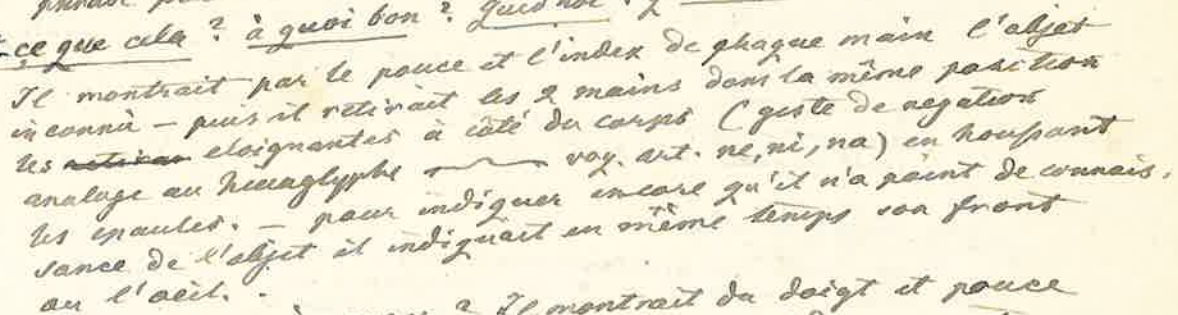 ce que cela ? à quoi bon ?
Il montrait par le pouce et l'index de chaque main l'objet
inconnu — puis il retirait les 2 mains dans la même position
les eloignantes à côté du corps (geste de negation
analoge au hieroglyphe voy. art. ne, ni, na) en houssant
les epaules. — pour indiquer encore qu'il n'a point de connais-
sance de l'objet il indiquait en même temps son front
ou l'oeil.
? Il montrait du doigt et pouce